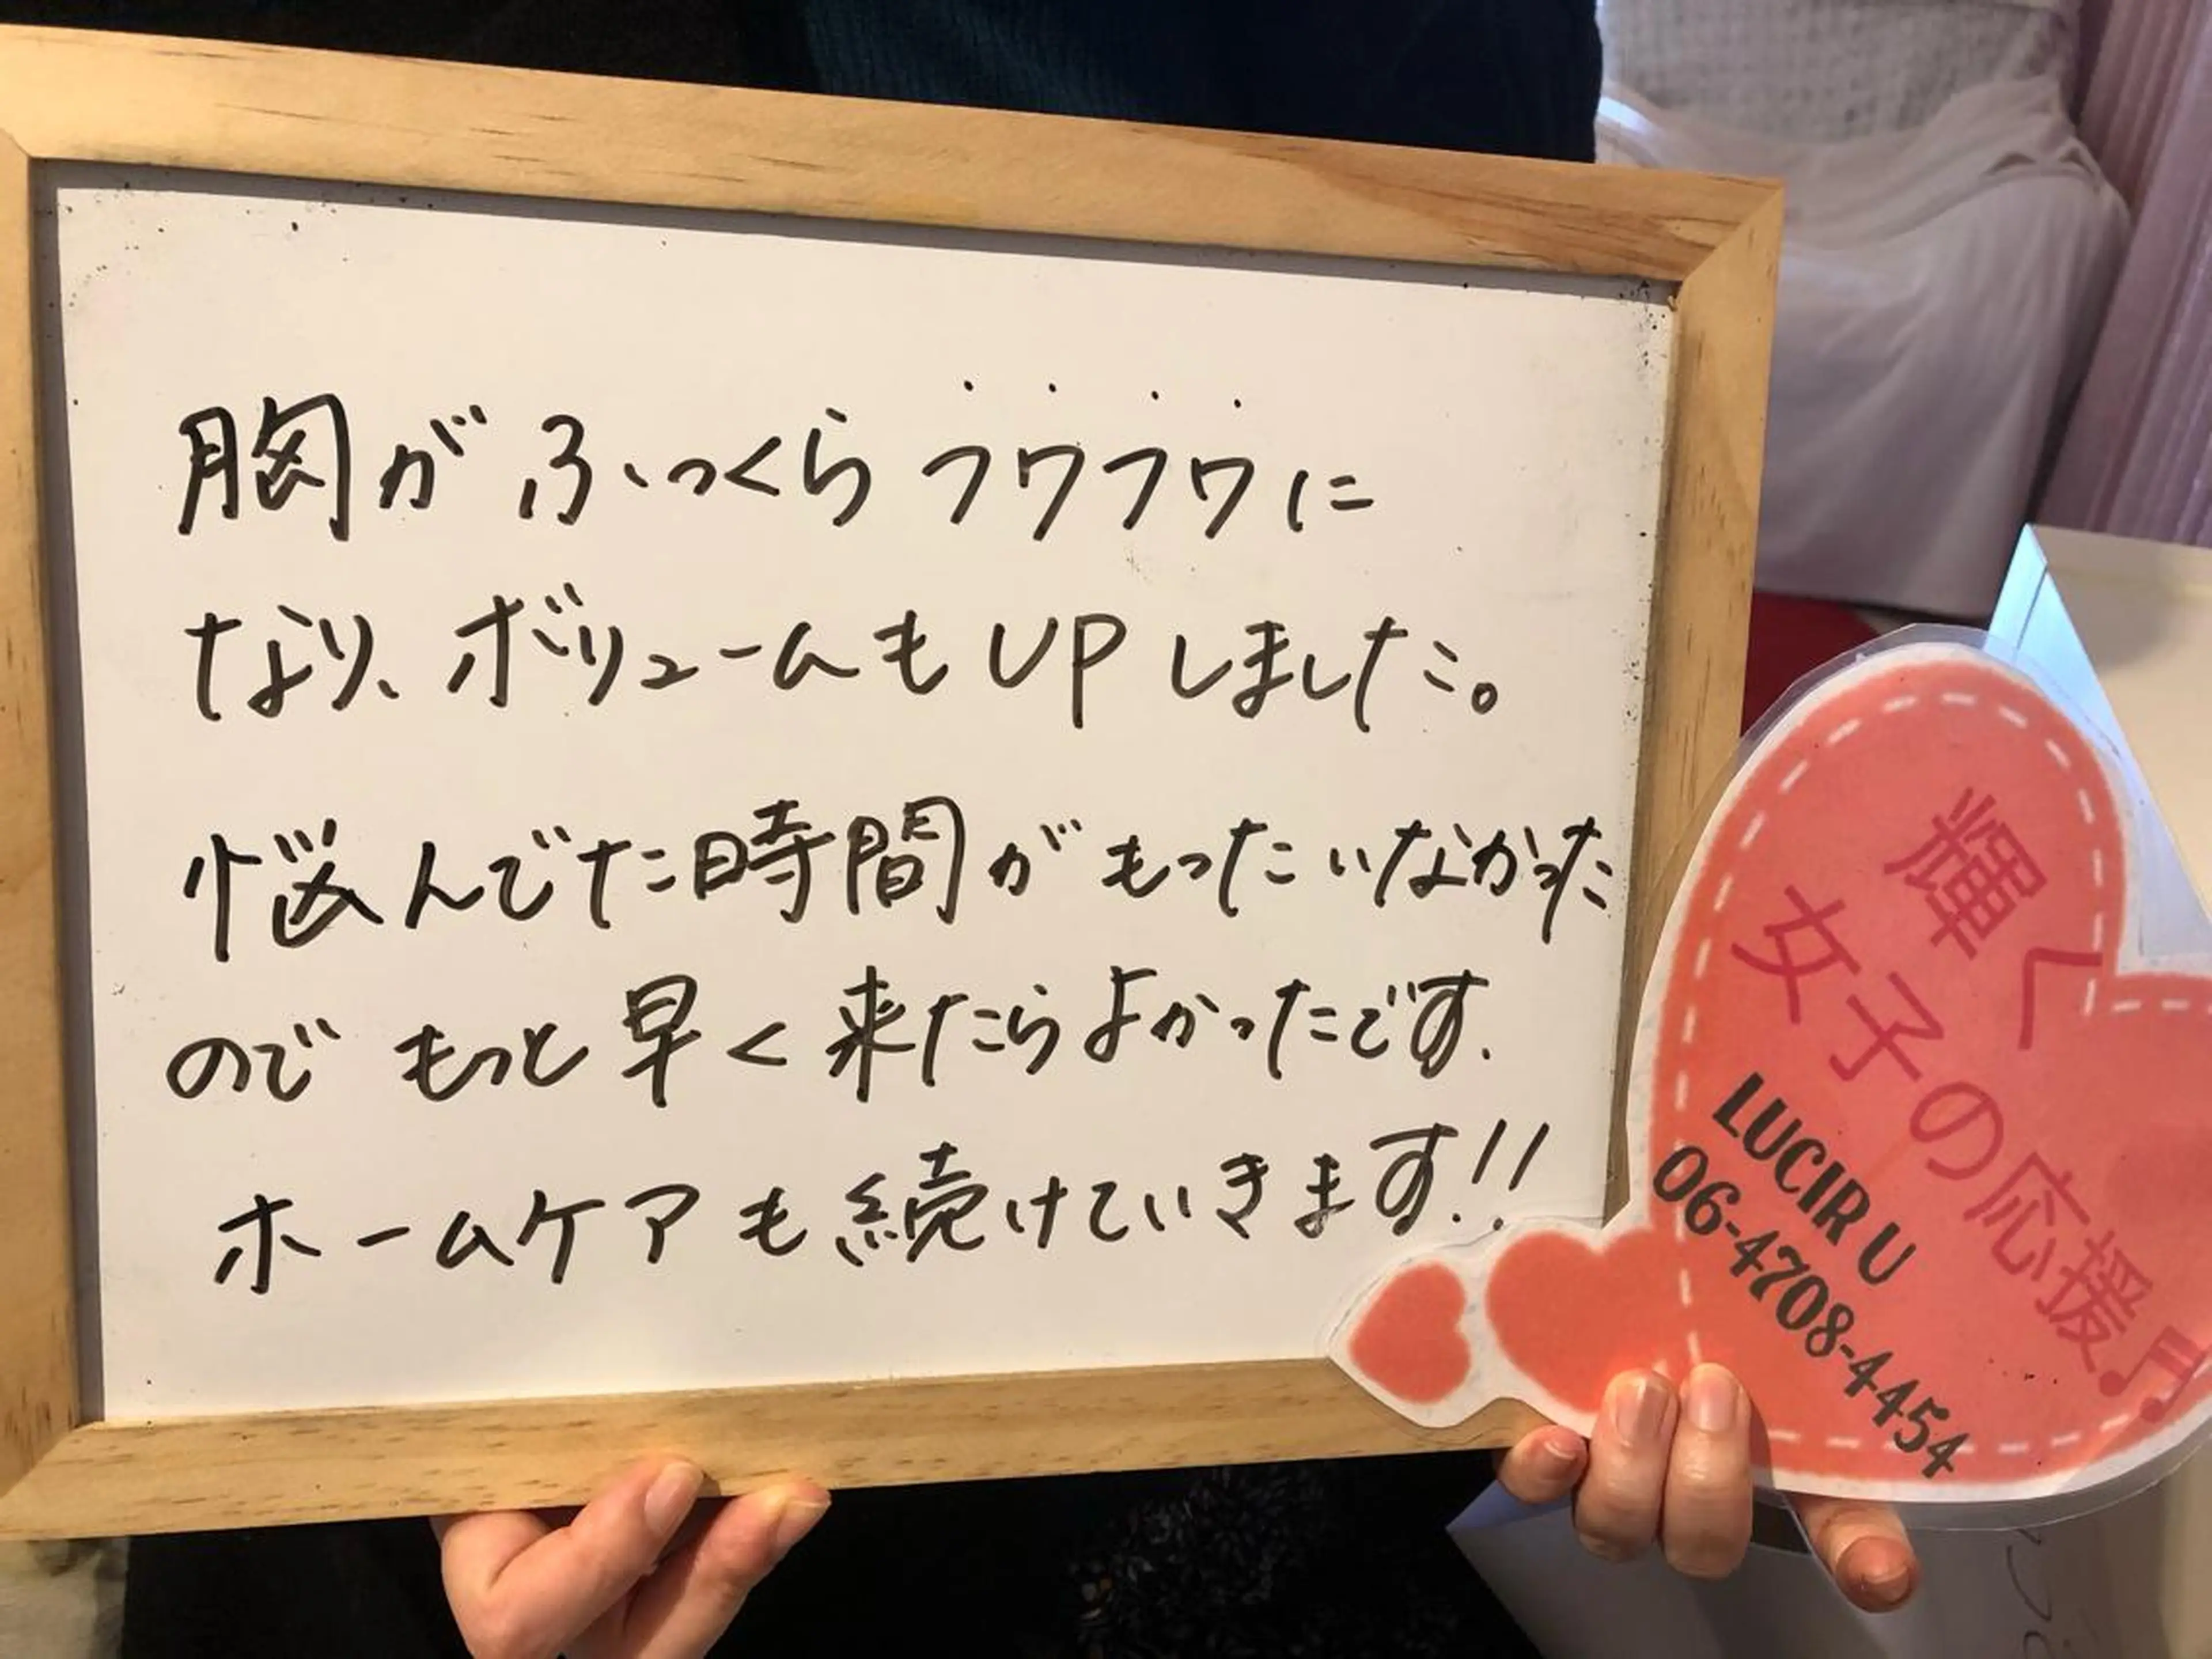 胸がふっくらフワフワに
なり、ボリュームもUPしました。
悩んでた時間がもったいなかった
のでもっと早く来たらよかったです.
ホームケアも続けていきます!!
輝く
女子の応援♬
LUCIR U
06-4708-4454